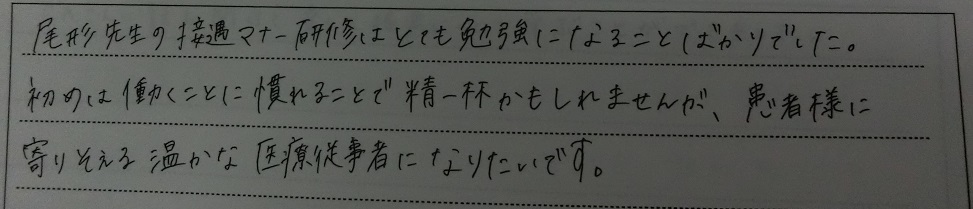 尾形先生の接遇マナー研修はとても勉強になることばかりでした。
初めは働くことに慣れることで精一杯かもしれませんが、患者様に
寄りそえる温かな医療従事者になりたいです。